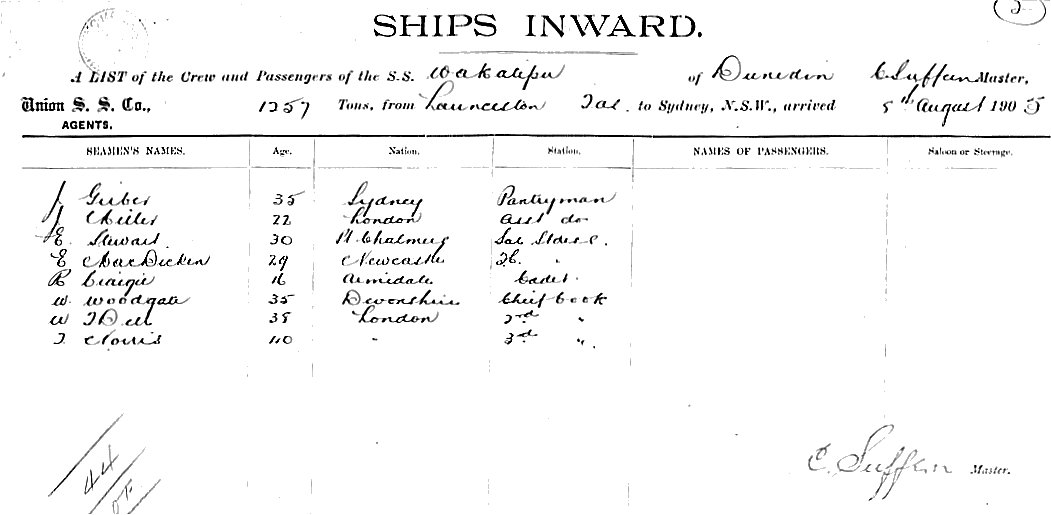 SHIPS INWARD.
A LIST of the Crew and Passengers of the S.S. Wakatipu of Dunedin C Suffern Master,
Union S. S. Co., 1257 Tons, from Launceston Tas. to Sydney, N.S.W., arrived 5th August 1905
AGENTS.
SEAMEN'S NAMES. Age. Nation. Station. NAMES OF PASSENGERS. Saloon or Steerage.
J 35 Sydney Pantryman
J 22 London Asst do
E. Stewart 30 Pt Chalmers Sal Stdess.
E MacDicken 29 Newcastle "
R Craigie 16 Armidale Cadet.
W. Woodgate 35 Devonshire Chief Cook
W 38 London 2nd "
T. 40 " 3rd ".
C. Suffern Master.
44
05.